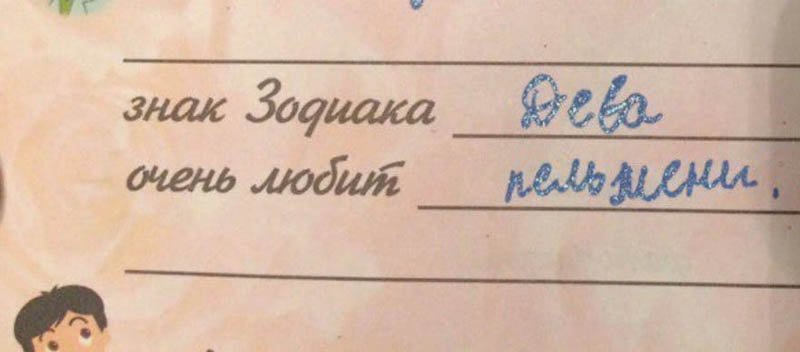 знак Зодиака Дева
очень любит пельмени.